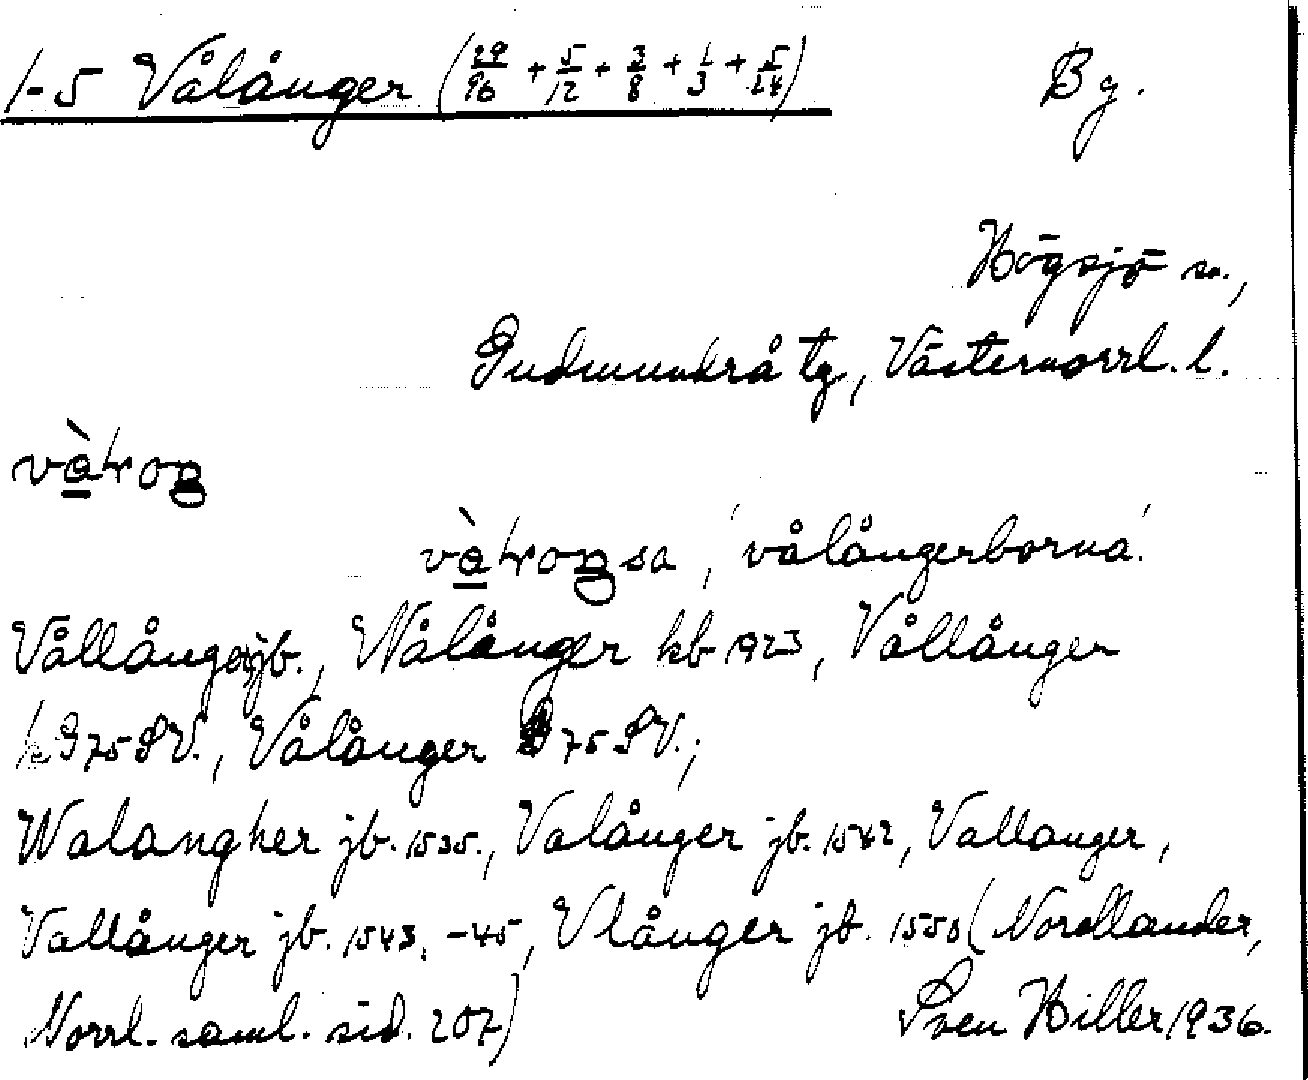 1-5 Vålånger (29/96 + 5/12 + 3/8 + 1/3 + 5/24) By.
Högsjö sn.,
Gudmundrå tg, Västernorrl. l.
'vålångerborna'
Vållånger jb., Wålånger kb 1923, Vållånger
G 75 SV., Vålånger G 75 SV.;
Walangher jb. 1535., Valånger jb. 1542, Vallanger,
Vallånger jb. 1543, -45, Vlånger jb. 1550 (Nordlander,
Norrl. saml. sid. 207) Sven Hiller 1936.